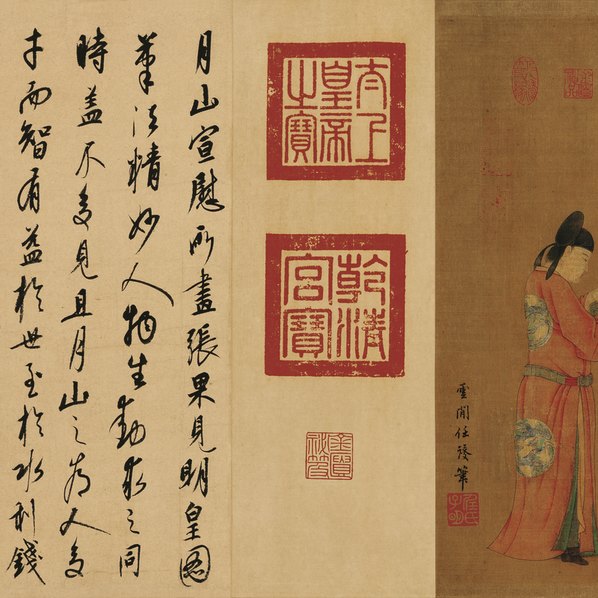 雲間任筆
任氏子明
太上皇帝之寶
乾清宮寶
月山宣慰所畫張果見明皇圖
筆法精妙人物生動求之同
時盖不多見且月山之為人多
才而智有益於世至於水利錢